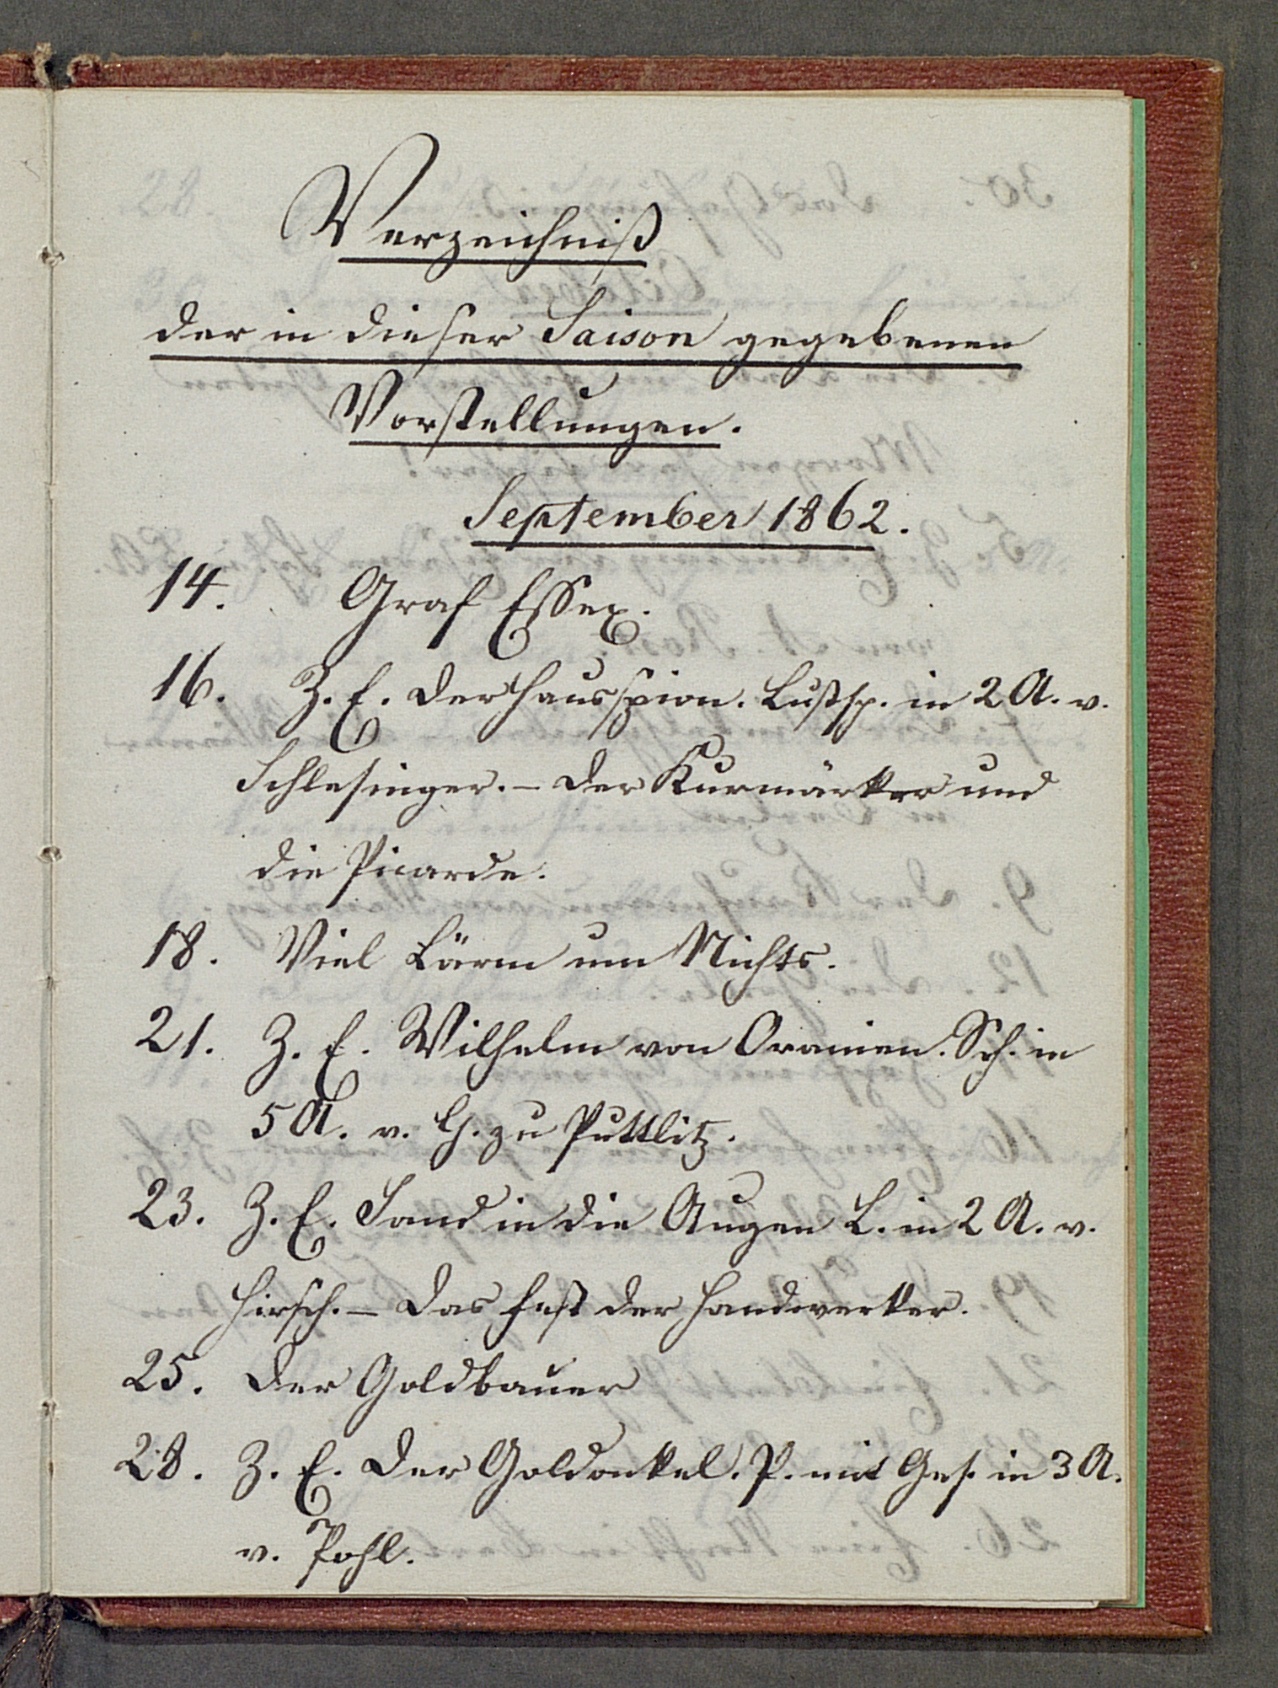 Verzeichniß
der in dieser Saison gegebenen
Vorstellungen.
September 1862.
14. Graf Essex.
16. Z. E. Der Hausspion. Lustsp. in 2 A. v.
Schlesinger. – Der Kurmärker und
die Picarde.
18. Viel Lärm um Nichts.
21. Z. E. Wilhelm von Oranien. Sch. in
5 A. v. G. zu Puttlitz.
23. Z. E. Sand in die Augen L. in 2 A. v.
Hirsch. – Das Fest der Handwerker.
25. Der Goldbauer
28. Z. E. Der Goldonkel. P. mit Ges. in 3 A.
v. Pohl.